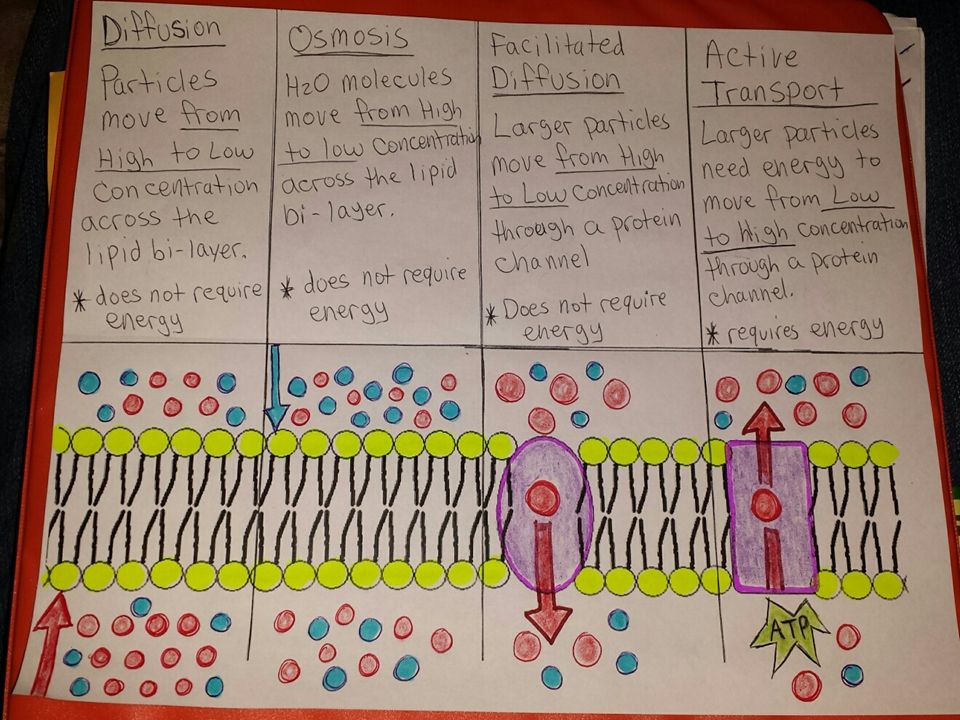 Diffusion
Particles
move from
High to Low
concentration
across the
lipid bi-layer.
* does not require
energy
Osmosis
H2O molecules
move from High
to low concentration
across the lipid
bi-layer.
* does not require
energy
Facilitated
Diffusion
Larger particles
move from High
to Low concentration
through a protein
channel
* Does not require
energy
Active
Transport
Larger particles
need energy to
move from Low
to High concentration
through a protein
channel.
* requires energy
ATP